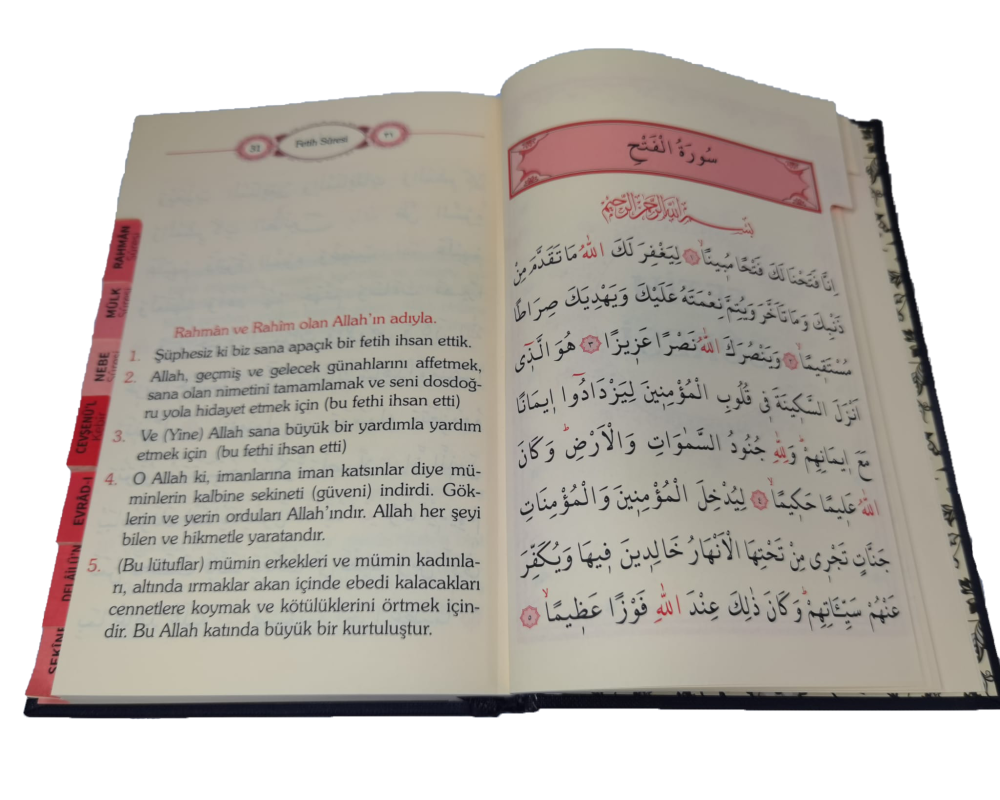 31 Fetih Sûresi ٣١
Rahmân ve Rahîm olan Allah'ın adıyla.
1. Şüphesiz ki biz sana apaçık bir fetih ihsan ettik.
2. Allah, geçmiş ve gelecek günahlarını affetmek,
sana olan nimetini tamamlamak ve seni dosdoğ-
ru yola hidayet etmek için (bu fethi ihsan etti)
3. Ve (Yine) Allah sana büyük bir yardımla yardım
etmek için (bu fethi ihsan etti)
4. O Allah ki, imanlarına iman katsınlar diye mü-
minlerin kalbine sekineti (güveni) indirdi. Gök-
lerin ve yerin orduları Allah'ındır. Allah her şeyi
bilen ve hikmetle yaratandır.
5. (Bu lütuflar) mümin erkekleri ve mümin kadınla-
rı, altında ırmaklar akan içinde ebedi kalacakları
cennetlere koymak ve kötülüklerini örtmek için-
dir. Bu Allah katında büyük bir kurtuluştur.
RAHMÂN
Sûresi
MÜLK
Sûresi
NEBE
Sûresi
CEVŞENÜ'L
Kebîr
EVRÂD-I
DELÂİLÜ'N
سُورَةُ الْفَتْحِ
بِسْمِ اللهِ الرَّحْمٰنِ الرَّحِيمِ
اِنَّا فَتَحْنَا لَكَ فَتْحًا مُبِينًاۙ ﴿١﴾ لِيَغْفِرَ لَكَ اللهُ مَا تَقَدَّمَ مِنْ
ذَنْبِكَ وَمَا تَاَخَّرَ وَيُتِمَّ نِعْمَتَهُ عَلَيْكَ وَيَهْدِيَكَ صِرَاطًا
مُسْتَقِيمًاۙ ﴿٢﴾ وَيَنْصُرَكَ اللهُ نَصْرًا عَزِيزًا ﴿٣﴾ هُوَ الَّذِٓي
اَنْزَلَ السَّكِينَةَ فِي قُلُوبِ الْمُؤْمِنِينَ لِيَزْدَادُٓوا اِيمَانًا
مَعَ اِيمَانِهِمْۜ وَلِلّٰهِ جُنُودُ السَّمٰوَاتِ وَالْاَرْضِۜ وَكَانَ
اللهُ عَلِيمًا حَكِيمًاۙ ﴿٤﴾ لِيُدْخِلَ الْمُؤْمِنِينَ وَالْمُؤْمِنَاتِ
جَنَّاتٍ تَجْرِي مِنْ تَحْتِهَا الْاَنْهَارُ خَالِدِينَ فِيهَا وَيُكَفِّرَ
عَنْهُمْ سَيِّـَٔاتِهِمْۜ وَكَانَ ذٰلِكَ عِنْدَ اللهِ فَوْزًا عَظِيمًاۙ ﴿٥﴾